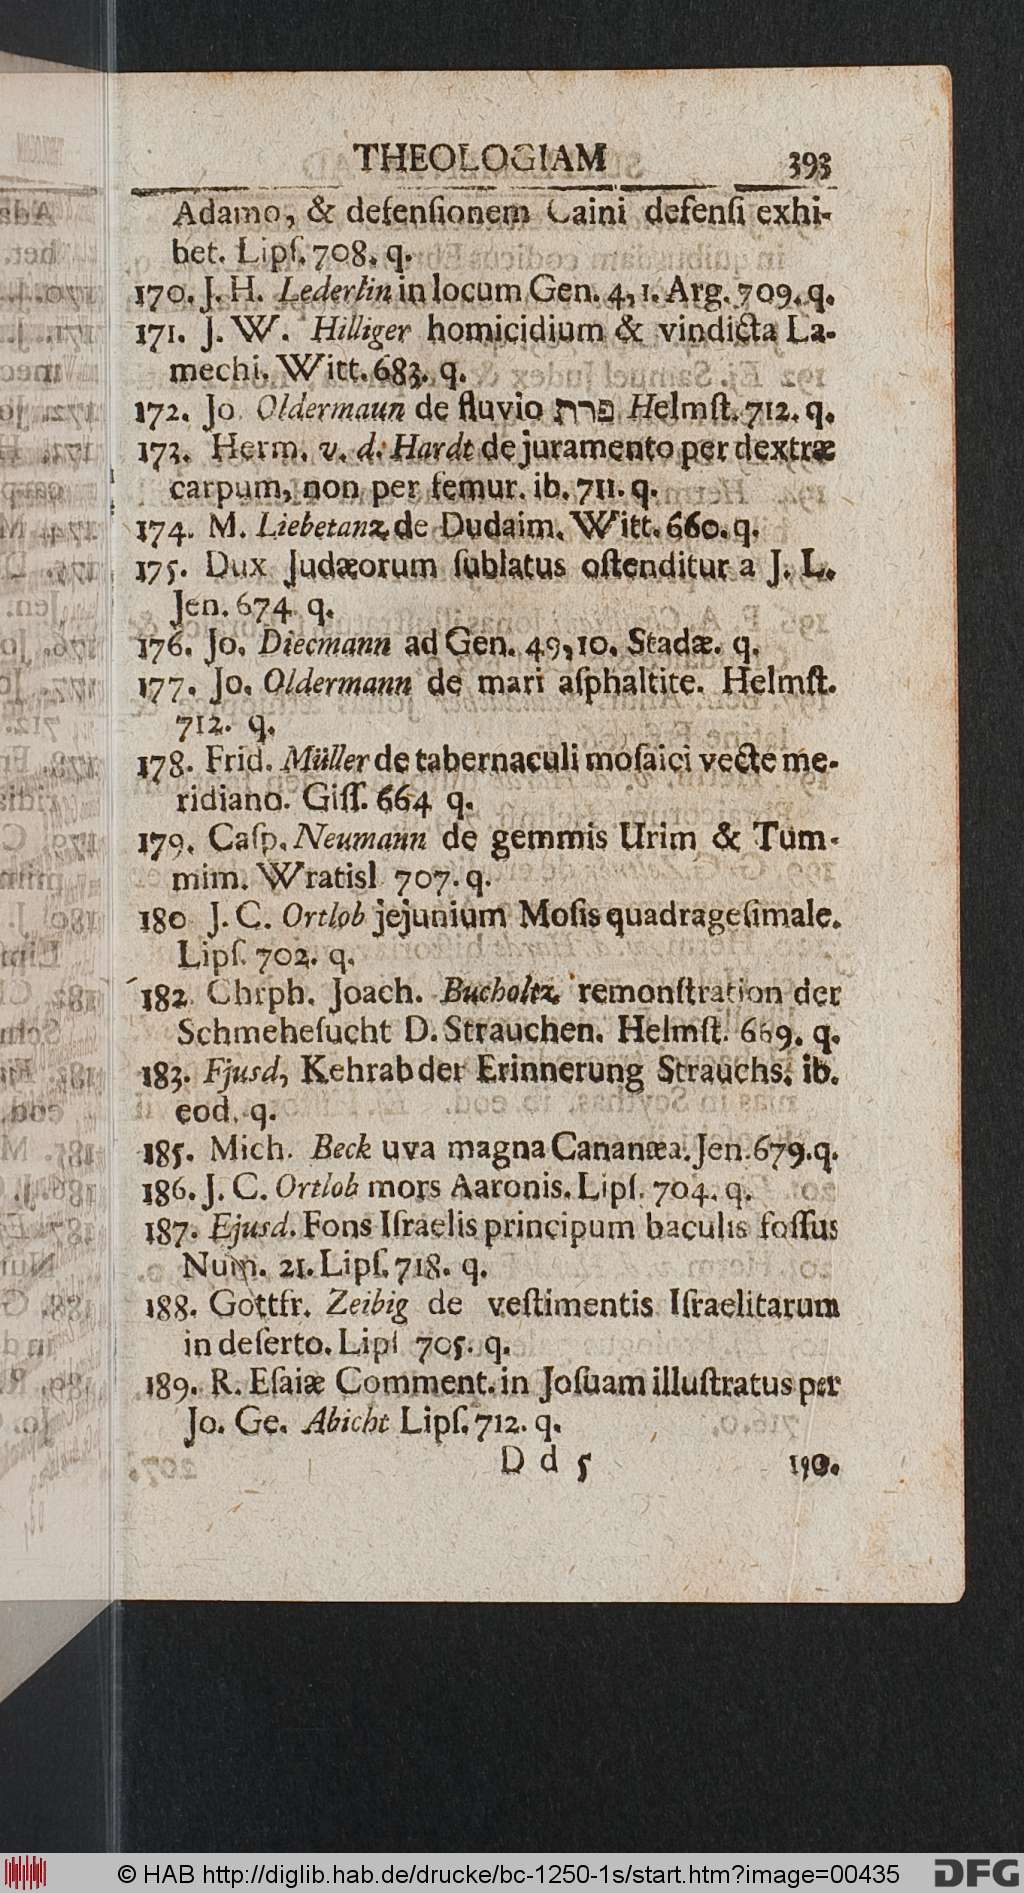 THEOLOGIAM 393
Adamo, & defenſionem Caini defenſi exhi-
bet. Lipſ. 708. q.
170. J. H. Lederlin in locum Gen. 4, 1. Arg. 709. q.
171. J. W. Hilliger homicidium & vindicta La-
mechi. Witt. 683. q.
172. Jo. Oldermaun de fluvio פרת Helmſt. 712. q.
173. Herm. v. d. Hardt de juramento per dextræ
carpum, non per femur. ib. 711. q.
174. M. Liebetanz de Dudaim. Witt. 660. q.
175. Dux Judæorum ſublatus oſtenditur a J. L.
Jen. 674. q.
176. Jo. Diecmann ad Gen. 49, 10. Stadæ. q.
177. Jo. Oldermann de mari aſphaltite. Helmſt.
712. q.
178. Frid. Müller de tabernaculi moſaici vecte me-
ridiano. Giſſ. 664 q.
179. Caſp. Neumann de gemmis Urim & Tum-
mim. Wratisl 707. q.
180 J. C. Ortlob jejunium Moſis quadrageſimale.
Lipſ. 702. q.
182 Chrph. Joach. Bucholtz remonſtration der
Schmeheſucht D. Strauchen. Helmſt. 669. q.
183. Ejusd, Kehrab der Erinnerung Strauchs. ib.
eod. q.
185. Mich. Beck uva magna Cananæa. Jen. 679. q.
186. J. C. Ortlob mors Aaronis. Lipſ. 704. q.
187. Ejusd. Fons Iſraelis principum baculis foſſus
Num. 21. Lipſ. 718. q.
188. Gottfr. Zeibig de veſtimentis Iſraelitarum
in deſerto. Lipſ 705. q.
189. R. Eſaiæ Comment. in Joſuam illuſtratus per
Jo. Ge. Abicht Lipſ. 712. q.
D d 5 190.
© HAB http://diglib.hab.de/drucke/bc-1250-1s/start.htm?image=00435 DFG